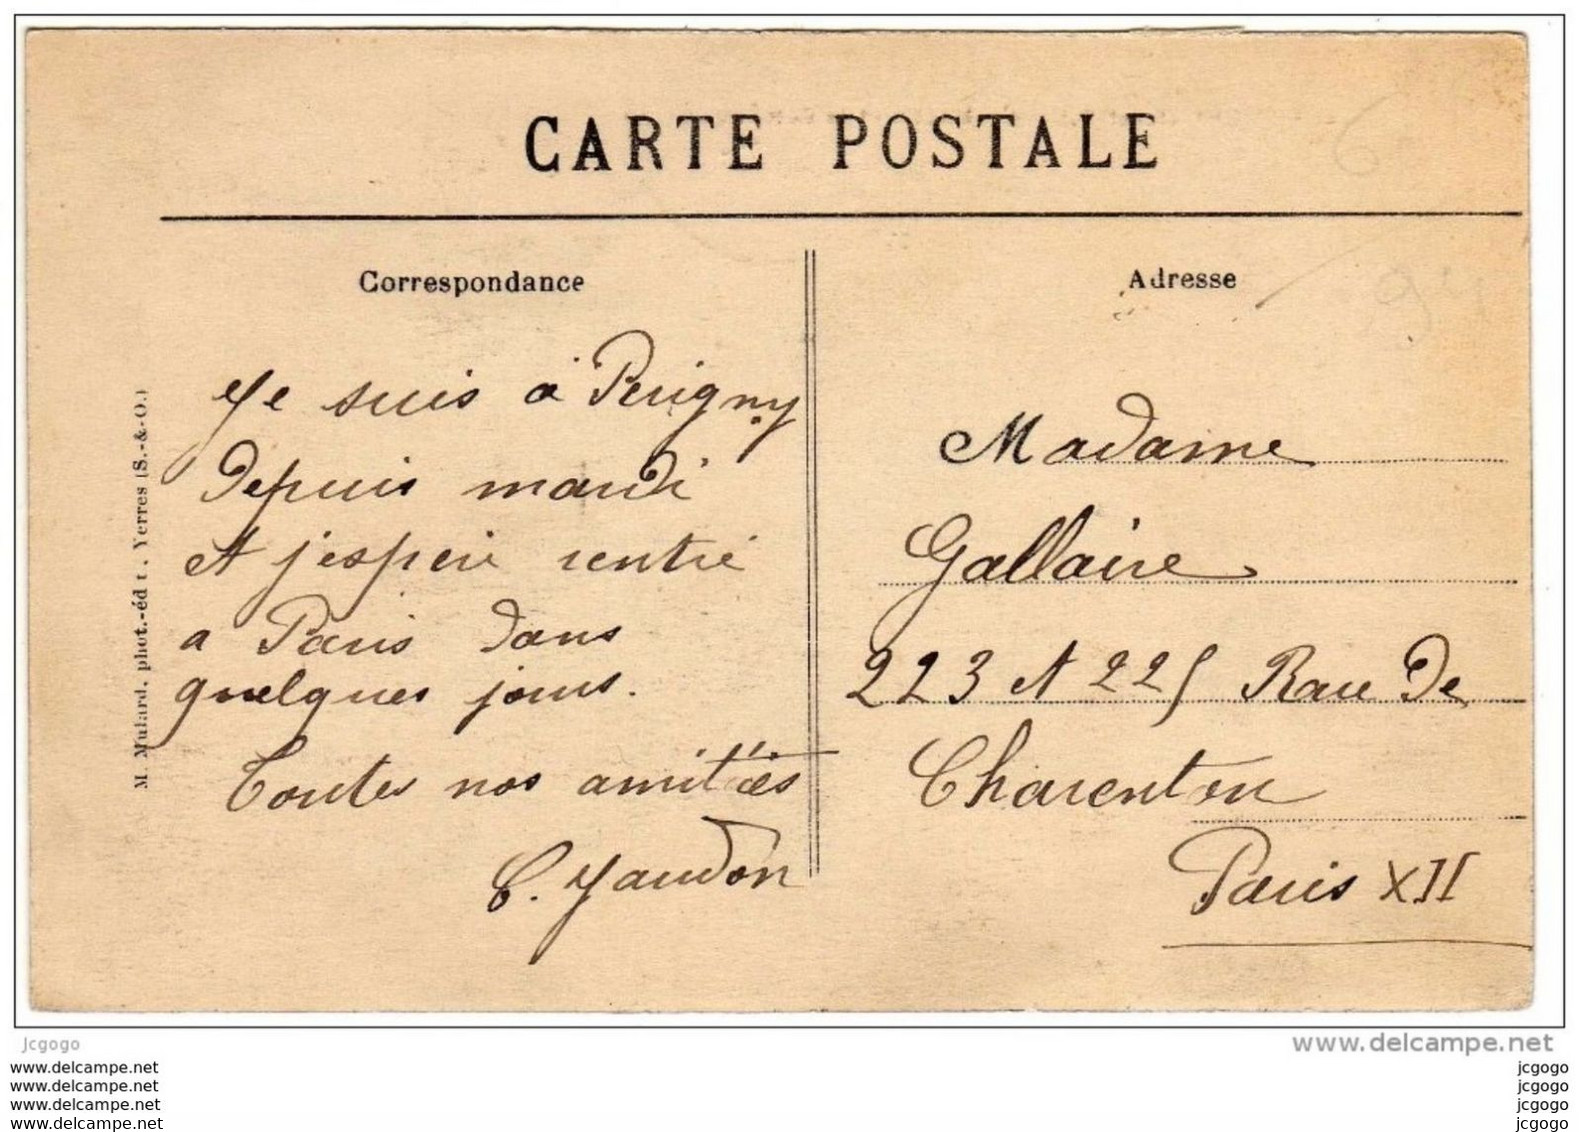 CARTE POSTALE
Correspondance
Adresse
M. Mulard, phot.-éd t., Yerres (S.-&-O.)
Je suis à Perigny
Depuis mardi
et j'espère rentré
a Paris dans
quelques jours.
Toutes nos amitiés
Madame
Gallaire
223 et 225 Rue De
Charenton
Paris XII
94
jcgogo
www.delcampe.net
www.delcampe.net
www.delcampe.net
www.delcampe.net
www.delcampe.net
jcgogo
jcgogo
jcgogo
jcgogo